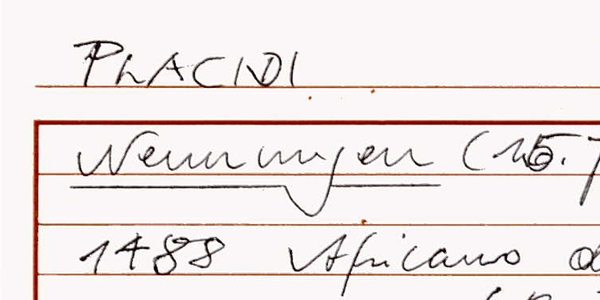 PLACIDI
Nennungen (15.
1488 Africano d